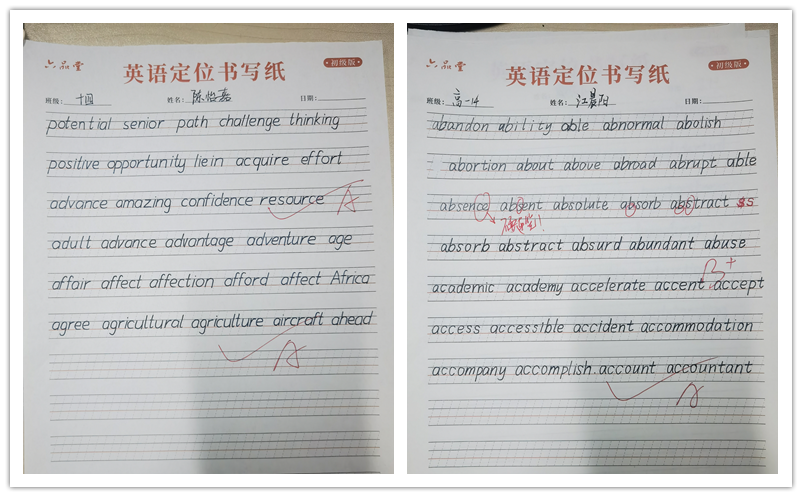 六品堂
英语定位书写纸
初级版
班级: 十四 姓名: 陈怡嘉 日期:
potential senior path challenge thinking
positive opportunity lie in acquire effort
advance amazing confidence resource A
adult advance advantage adventure age
affair affect affection afford affect Africa
agree agricultural agriculture aircraft ahead
A
六品堂
英语定位书写纸
初级版
班级: 高一14 姓名: 江晨阳 日期:
abandon ability able abnormal abolish
abortion about above abroad abrupt able
absence absent absolute absorb abstract s s
absorb abstract absurd abundant abuse
B+
academic academy accelerate accent accept
access accessible accident accommodation
accompany accomplish. account accountant
A